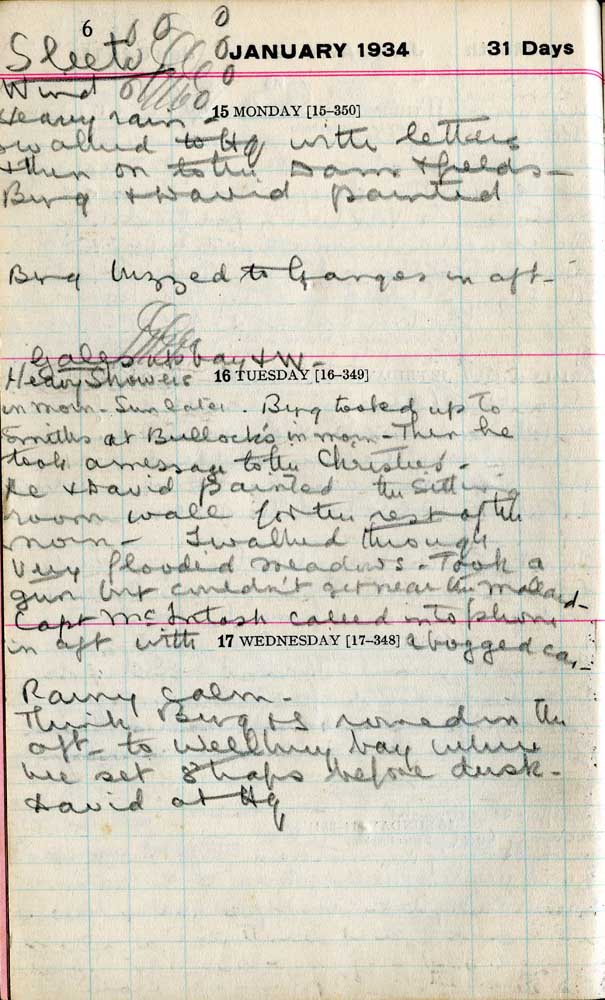 6
JANUARY 1934 31 Days
Sleet
Wind
Heavy rain -
15 MONDAY [15-350]
walked to Hq with letters
& then on to the Dam & fields -
Bing & David painted
Bing buzzed to Ganges in aft -
Gales bay & W -
Heavy Showers
16 TUESDAY [16-349]
in morn - Sun later. Bing tooled up to
Smiths at Bullock's in morn - Then he
took a message to the Christies -
He & David painted the Sitting
room wall for the rest of the
morn - I walked through
very flooded meadows - Took a
gun but couldn't get near the mallard -
Capt McIntosh called in to phone
in aft with a bogged car -
17 WEDNESDAY [17-348]
Rainy calm -
Think Bing & I rowed in the
aft - to Welbury bay where
he set 8 traps before dusk -
David at Hq